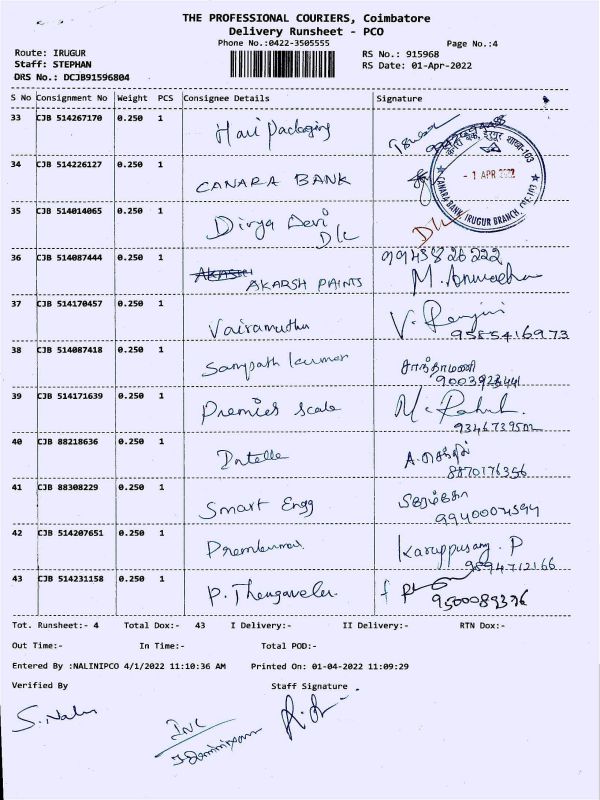 THE PROFESSIONAL COURIERS, Coimbatore
Delivery Runsheet - PCO
Phone No.:0422-3505555 Page No.:4
Route: IRUGUR RS No.: 915968
Staff: STEPHAN RS Date: 01-Apr-2022
DRS No.: DCJB91596804
S No Consignment No Weight PCS Consignee Details Signature
33 CJB 514267170 0.250 1 Hari Packaging
34 CJB 514226127 0.250 1 CANARA BANK
- 1 APR 2022
CANARA BANK, IRUGUR BRANCH,
35 CJB 514014065 0.250 1 Divya Devi
D/c D/c
36 CJB 514087444 0.250 1 AKARSH PAINTS
37 CJB 514170457 0.250 1 Vairamuthu V. Ranjini
9585416973
38 CJB 514087418 0.250 1 Sampath kumar சாந்தாமணி
39 CJB 514171639 0.250 1 Premier Scale
40 CJB 88218636 0.250 1
8870176356
41 CJB 88308229 0.250 1 Smart Engg
42 CJB 514207651 0.250 1 Premkumar Karuppusamy. P
9894712166
43 CJB 514231158 0.250 1 P. Thangavelu
Tot. Runsheet:- 4 Total Dox:- 43 I Delivery:- II Delivery:- RTN Dox:-
Out Time:- In Time:- Total POD:-
Entered By :NALINIPCO 4/1/2022 11:10:36 AM Printed On: 01-04-2022 11:09:29
Verified By Staff Signature